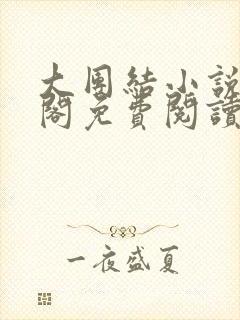 大團結小說
閣免費閱讀
一夜盛夏